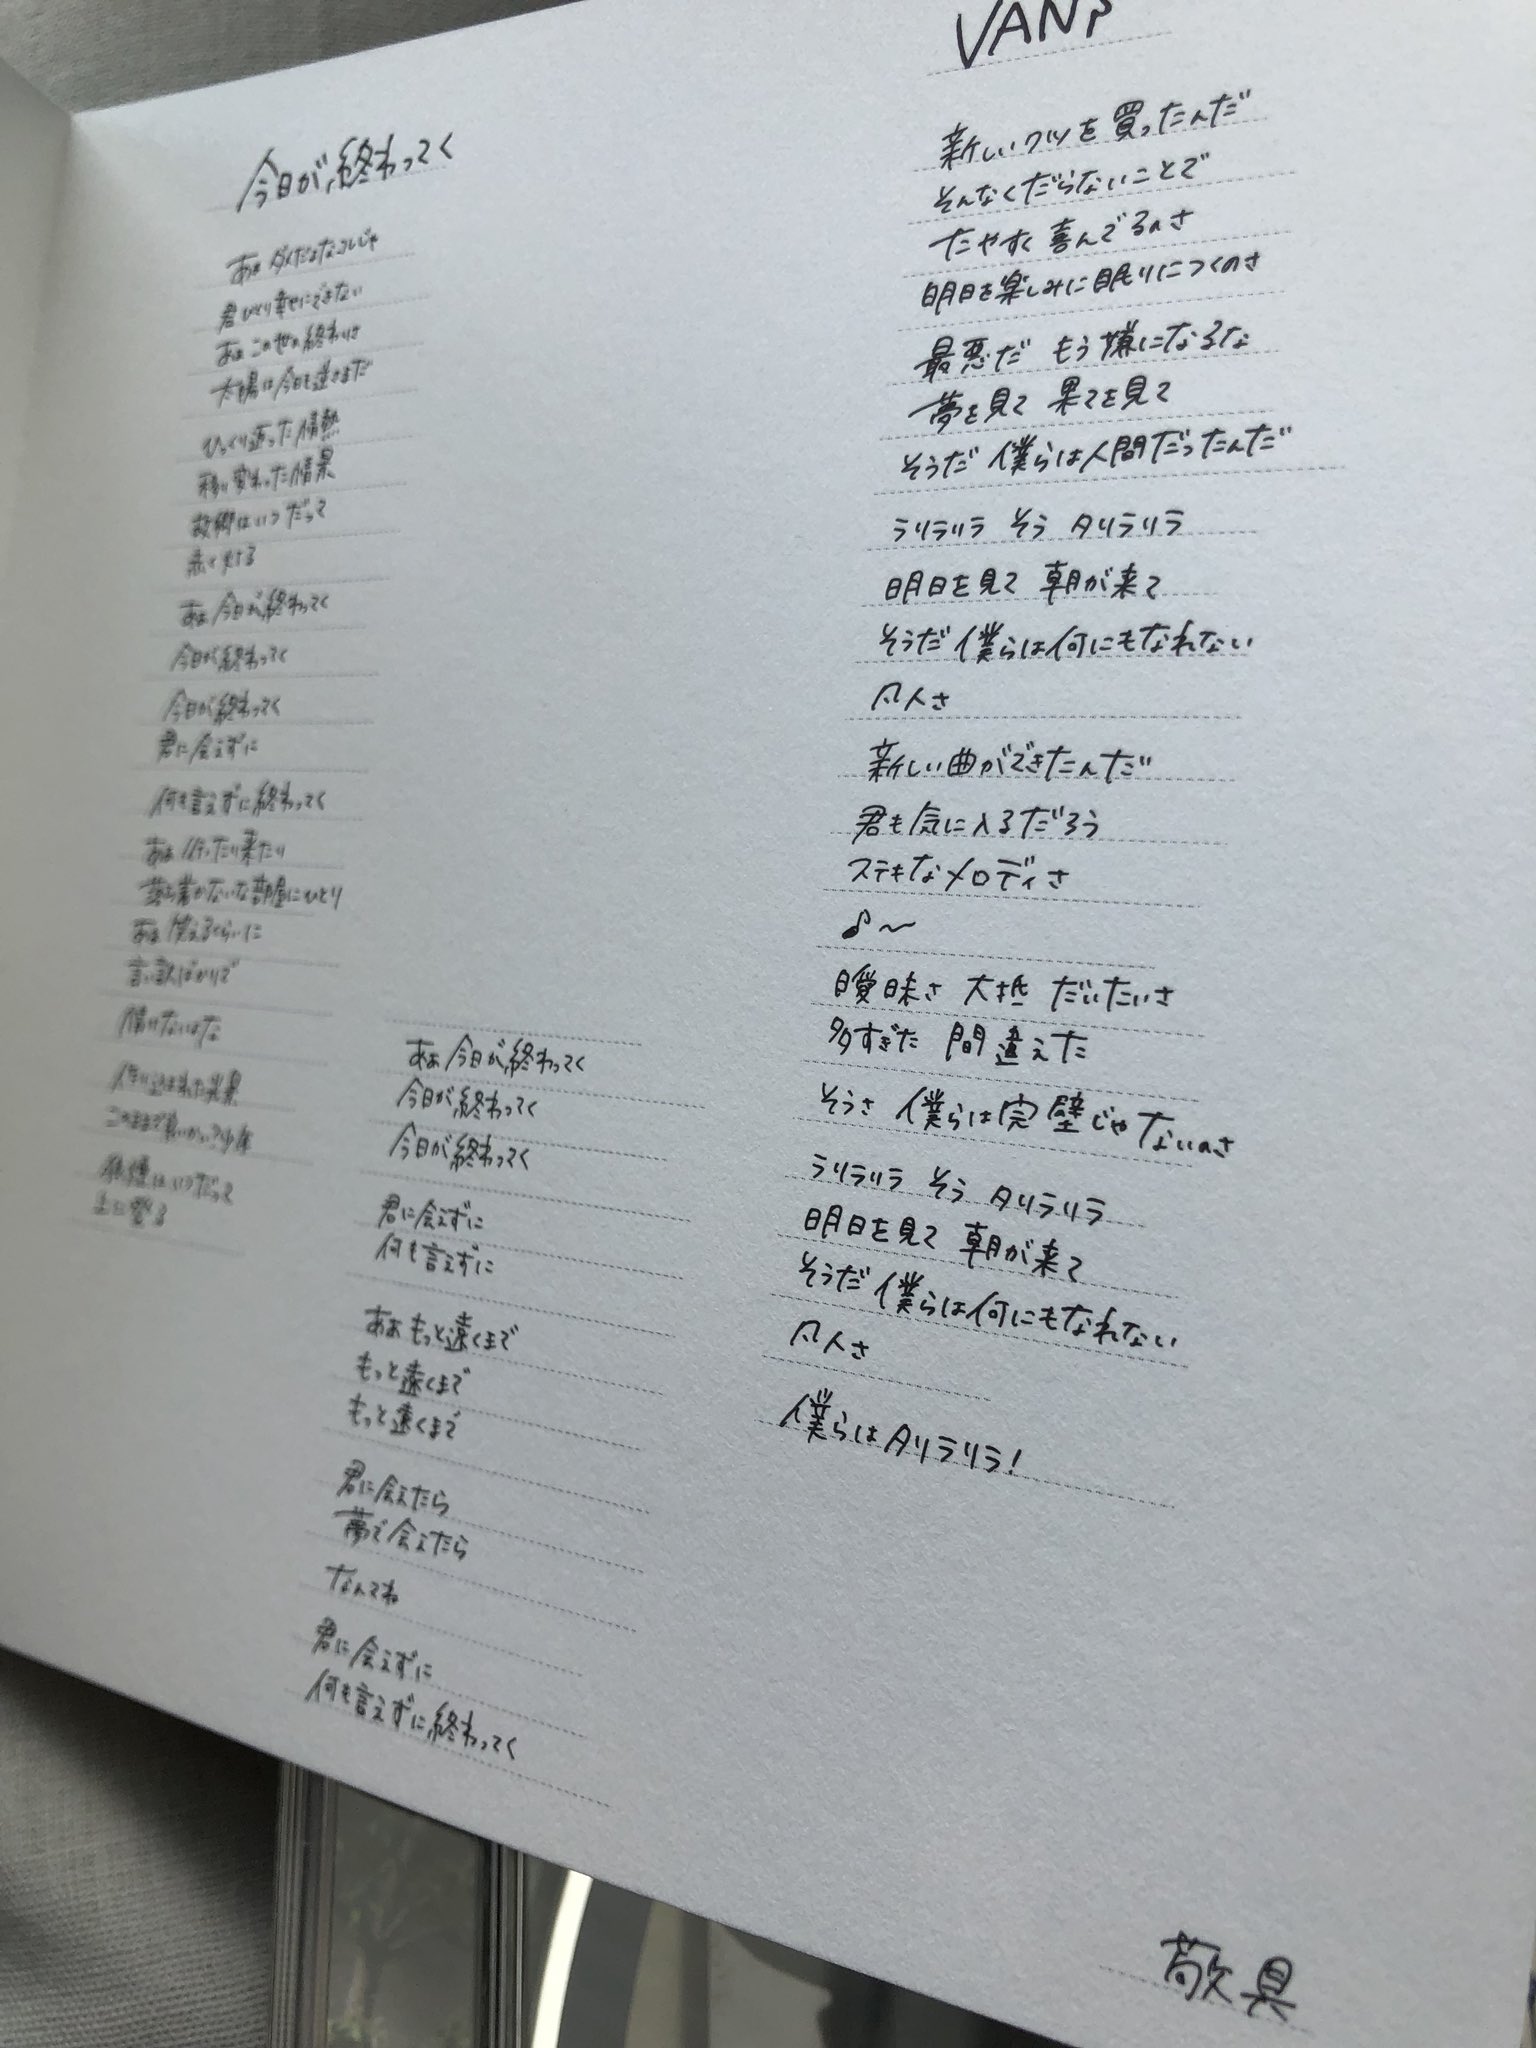 今日が終わってく
君ひとり幸せにできない
あぁ この世の終わりさ
太陽は今日も逆さまだ
ひっくり返った情熱
移り変わった情景
故郷はいつだって
あぁ 今日が終わってく
今日が終わってく
今日が終わってく
君に会えずに
何も言えずに終わってく
あぁ 行ったり来たり
落ち着かないな部屋にひとり
あぁ 笑えるくらいに
言い訳ばかりで
情けないよな
このままで良いかい?少年
はいつだって
あぁ 今日が終わってく
今日が終わってく
今日が終わってく
君に会えずに
何も言えずに
あぁ もっと遠くまで
もっと遠くまで
もっと遠くまで
君に会えたら
夢で会えたら
なんてね
君に会えずに
何も言えずに終わってく
新しいクツを買ったんだ
そんなくだらないことで
たやすく喜んでるのさ
明日を楽しみに眠りにつくのさ
最悪だ もう嫌になるな
夢を見て 果てを見て
そうだ 僕らは人間だったんだ
ラリラリラ そう タリラリラ
明日を見て 朝が来て
そうだ 僕らは何にもなれない
凡人さ
新しい曲ができたんだ
君も気に入るだろう
ステキなメロディさ
♪〜
曖昧さ 大抵 だいたいさ
多すぎた 間違えた
そうさ 僕らは完璧じゃないのさ
ラリラリラ そう タリラリラ
明日を見て 朝が来て
そうだ 僕らは何にもなれない
凡人さ
僕らはタリラリラ!
敬具